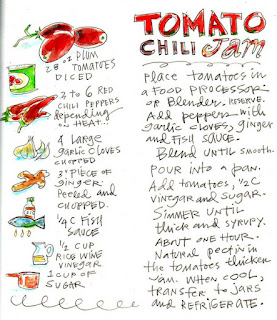 28 oz PLUM
TOMATOES
DICED
2 to 6 RED
CHILI PEPPERS
depending
on HEAT...
4 Large
garlic Cloves
CHOPPED
3" PIECE of
ginger
Peeled and
CHOPPED.
1/4 C FISH
SAUCE
1/2 CUP
RICE WINE
VINEGAR
1 CUP OF
SUGAR
TOMATO
CHILI Jam
Place tomatoes in
a FOOD PROCESSOR
or Blender. RESERVE.
Add peppers with
garlic cloves, ginger
and FISH SAUCE.
Blend UNTIL SMOOTH.
POUR into a pan.
Add tomatoes, 1/2 C
Vinegar and Sugar.
SIMMER UNTIL
thick and syrupy.
About one HOUR.
Natural pectin in
the tomatoes thicken
jam. When COOL,
transfer to jars
and REFRIGERATE.